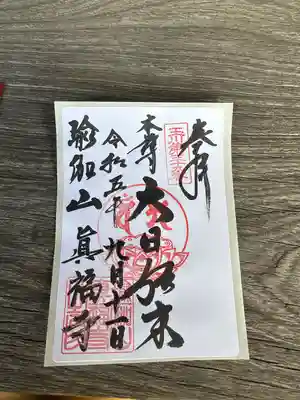 奉拝
本尊
大日如来
令和五年
九月十一日
瑜伽山
真福寺